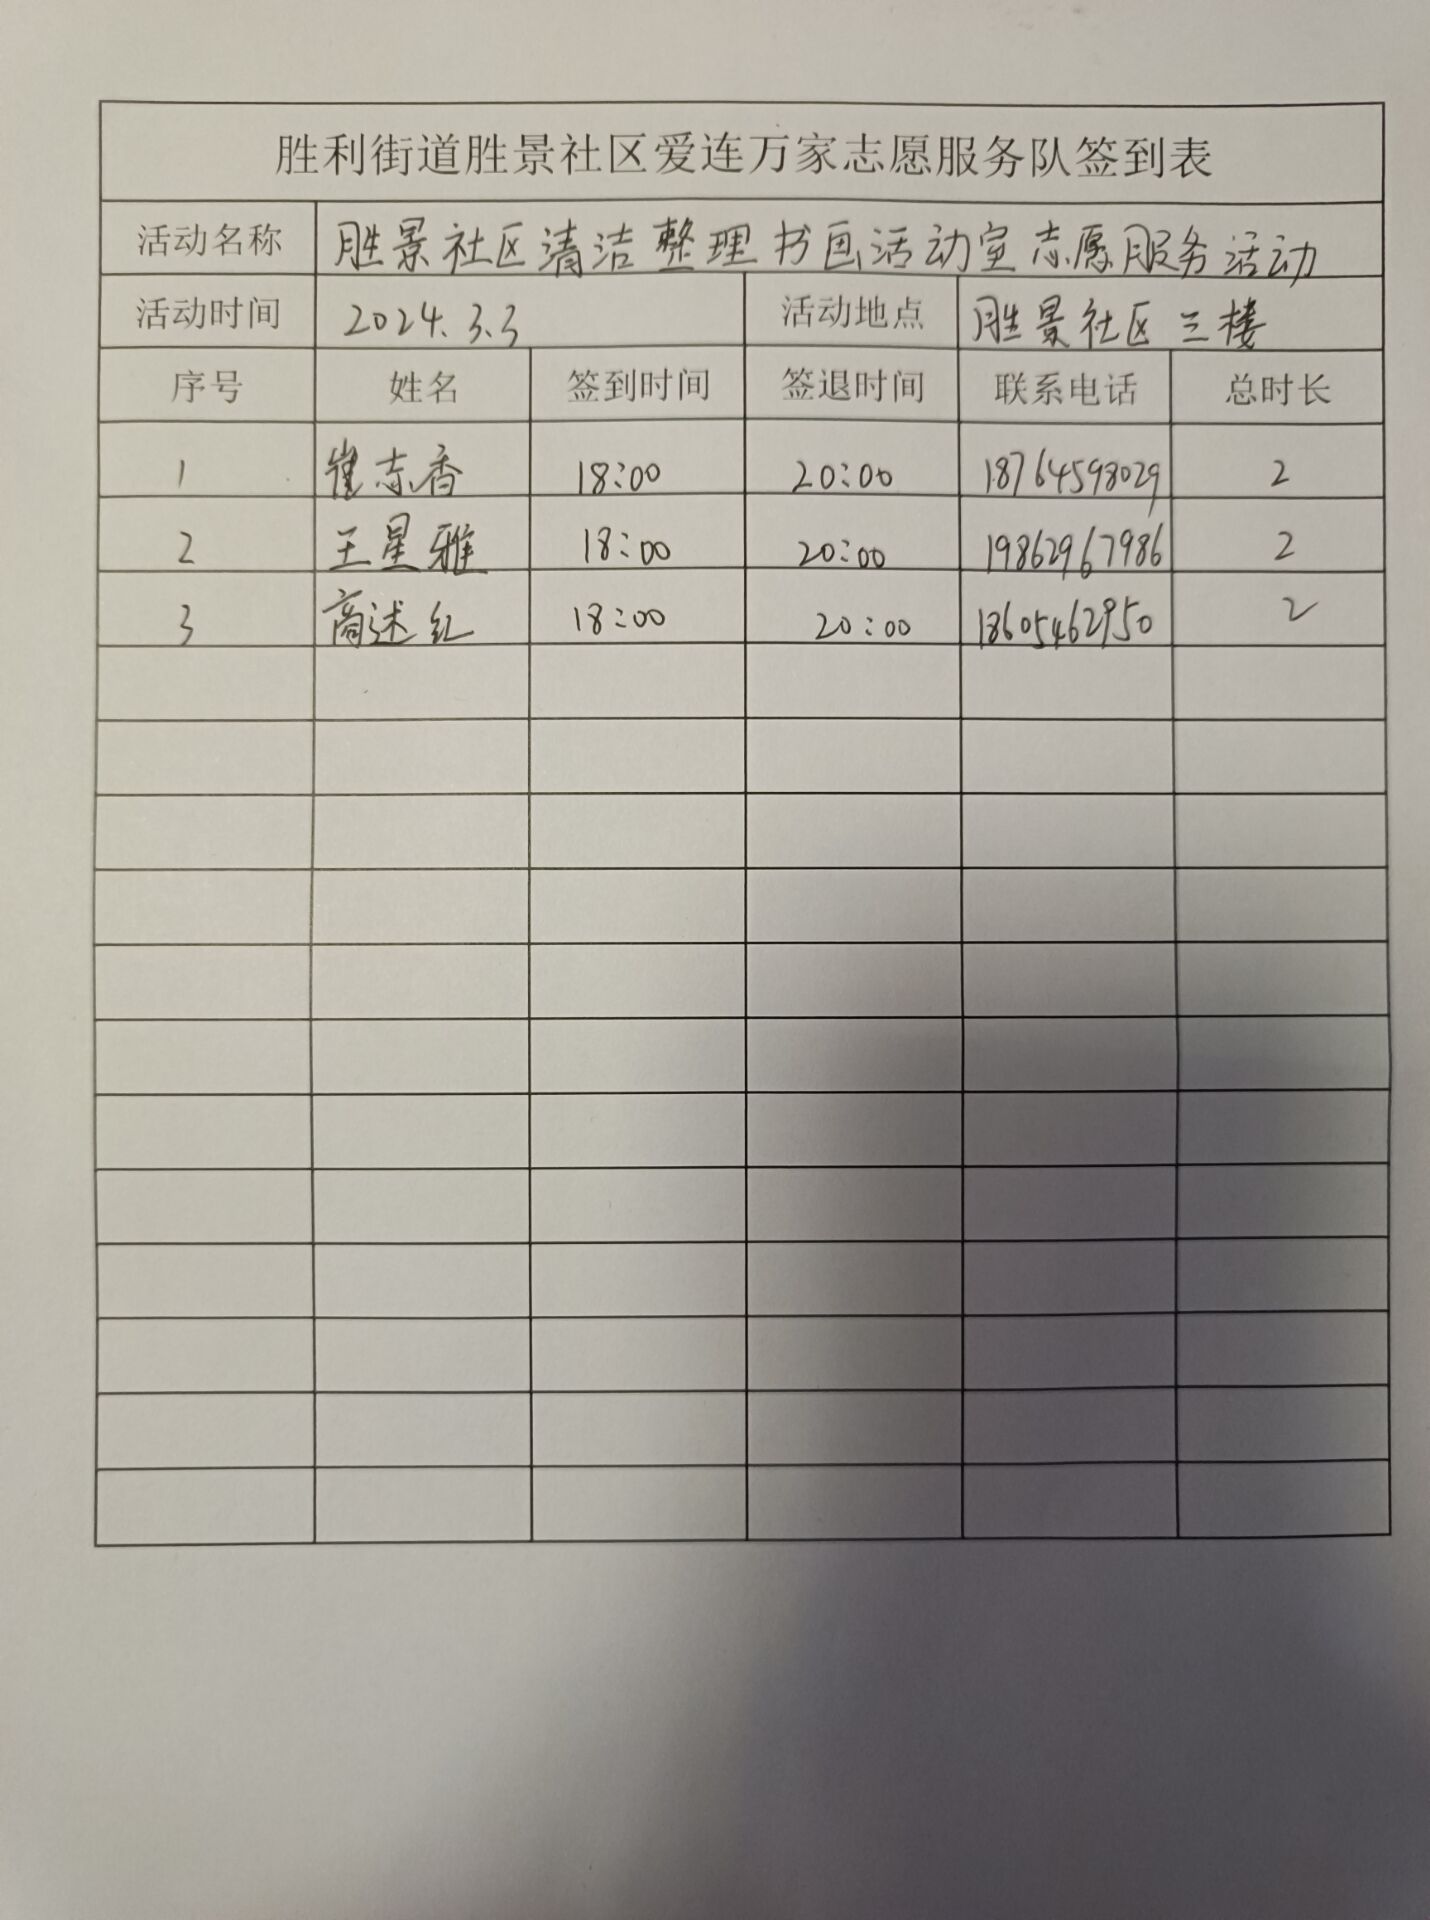 胜利街道胜景社区爱连万家志愿服务队签到表
活动名称 胜景社区清洁整理书画活动室志愿服务活动
活动时间 2024.3.3 活动地点 胜景社区三楼
序号 姓名 签到时间 签退时间 联系电话 总时长
1 崔志香 18:00 20:00 18764598029 2
2 王星雅 18:00 20:00 19862967986 2
3 商述红 18:00 20:00 18605462950 2